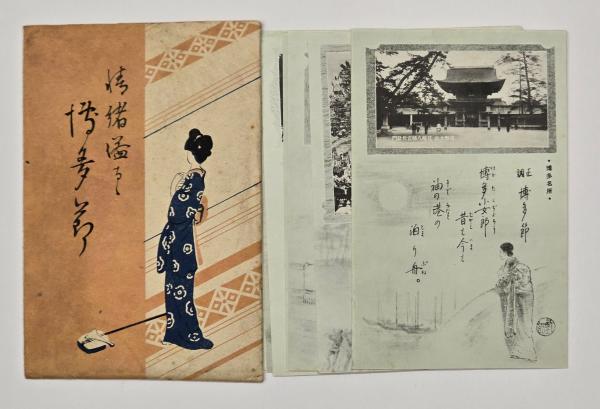 情緒溢るゝ
博多節
・博多名所・
正調 博多節
博多小女郎
昔も今も
袖の港の
泊り舟。